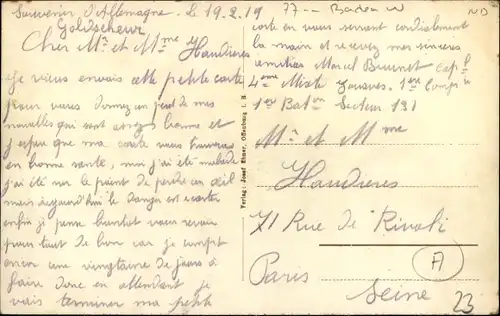 Souvenir d'Allemagne. le 19.2.19
Goldscheur
Cher Mr et Mme Handieres
Je vous envois cette petite carte
Pour vous donner un peut de mes
nouvelles qui sont assez bonne et
J'espere que ma carte vous trouvera
en bonne santé, moi j'ai été malade
j'ai été sur le point de perdre un œil
mais aujourd'hui le danger est ecarter
enfin je pense bientot vous revoir
pour tout de bon car je compte
encor une vingtaine de jours à
faire donc en attendant je
vais terminer ma petite
77 - Baden W
ND
carte en vous serrant cordialement
la main et recevez mes sinceres
amities Marcel Brunet Cap
4eme Mixte 1ere Comp
1er Baton Secteur 131
Verlag: Josef Ebner, Offenburg i. B.
Mr et Mme
Handieres
71 Rue de Rivoli
A
Paris
Seine
23